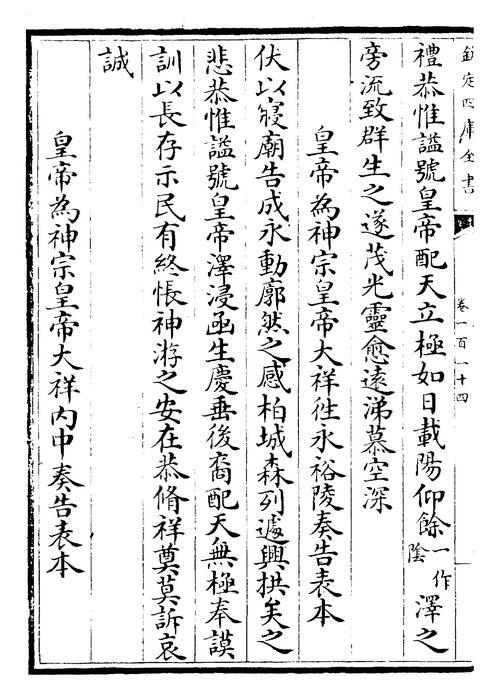 欽定四庫全書
卷一百一十四
禮恭惟謚號皇帝配天立極如日載陽仰餘一作陰澤之
旁流致群生之遂茂光靈愈遠涕慕空深
皇帝為神宗皇帝大祥徃永裕陵奏告表本
伏以寢廟告成永動廓然之感柏城森列遽興拱矣之
悲恭惟謚號皇帝澤浸函生慶垂後裔配天無極奉謨
訓以長存示民有終悵神游之安在恭脩祥奠莫訴哀
誠
皇帝為神宗皇帝大祥内中奏告表本